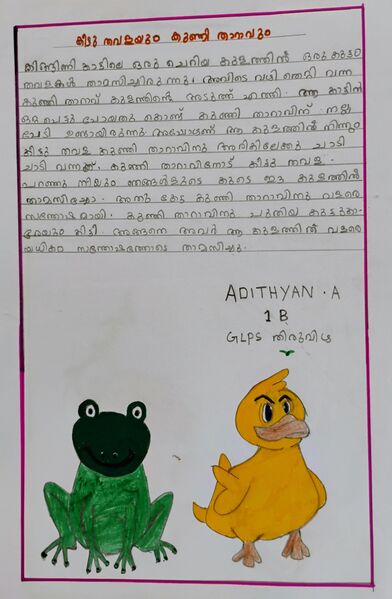 കിട്ടു തവളയും കുഞ്ഞി താറാവും
കിങ്ങിണി കാട്ടിലെ ഒരു ചെറിയ കുളത്തിൽ ഒരു കൂട്ടം
തവളകൾ താമസിച്ചിരുന്നു. അവിടെ വഴി തെറ്റി വന്ന
കുഞ്ഞി താറാവ് കുളത്തിന്റെ അടുത്ത് എത്തി. ആ കാട്ടിൽ
ഒറ്റപെട്ടു പോയതു കൊണ്ട് കുഞ്ഞി താറാവിന് നല്ല
പേടി ഉണ്ടായിരുന്നു. അപ്പോഴാണ് ആ കുളത്തിൽ നിന്നും
കിട്ടു തവള കുഞ്ഞി താറാവിനു അരികിലേക്കു ചാടി
ചാടി വന്നത്. കുഞ്ഞി താറാവിനോട് കിട്ടു തവള
പറഞ്ഞു നീയും ഞങ്ങളുടെ കൂടെ ഈ കുളത്തിൽ
താമസിച്ചോ. അതു കേട്ട കുഞ്ഞി താറാവിനു വളരെ
സന്തോഷമായി. കുഞ്ഞി താറാവിനു പുതിയ കൂട്ടുകാ-
രേയും കിട്ടി. അങ്ങനെ അവർ ആ കുളത്തിൽ വളരെ
യധികം സന്തോഷത്തോടെ താമസിച്ചു.
ADITHYAN . A
1 B
GLPS തിരുവിഴ